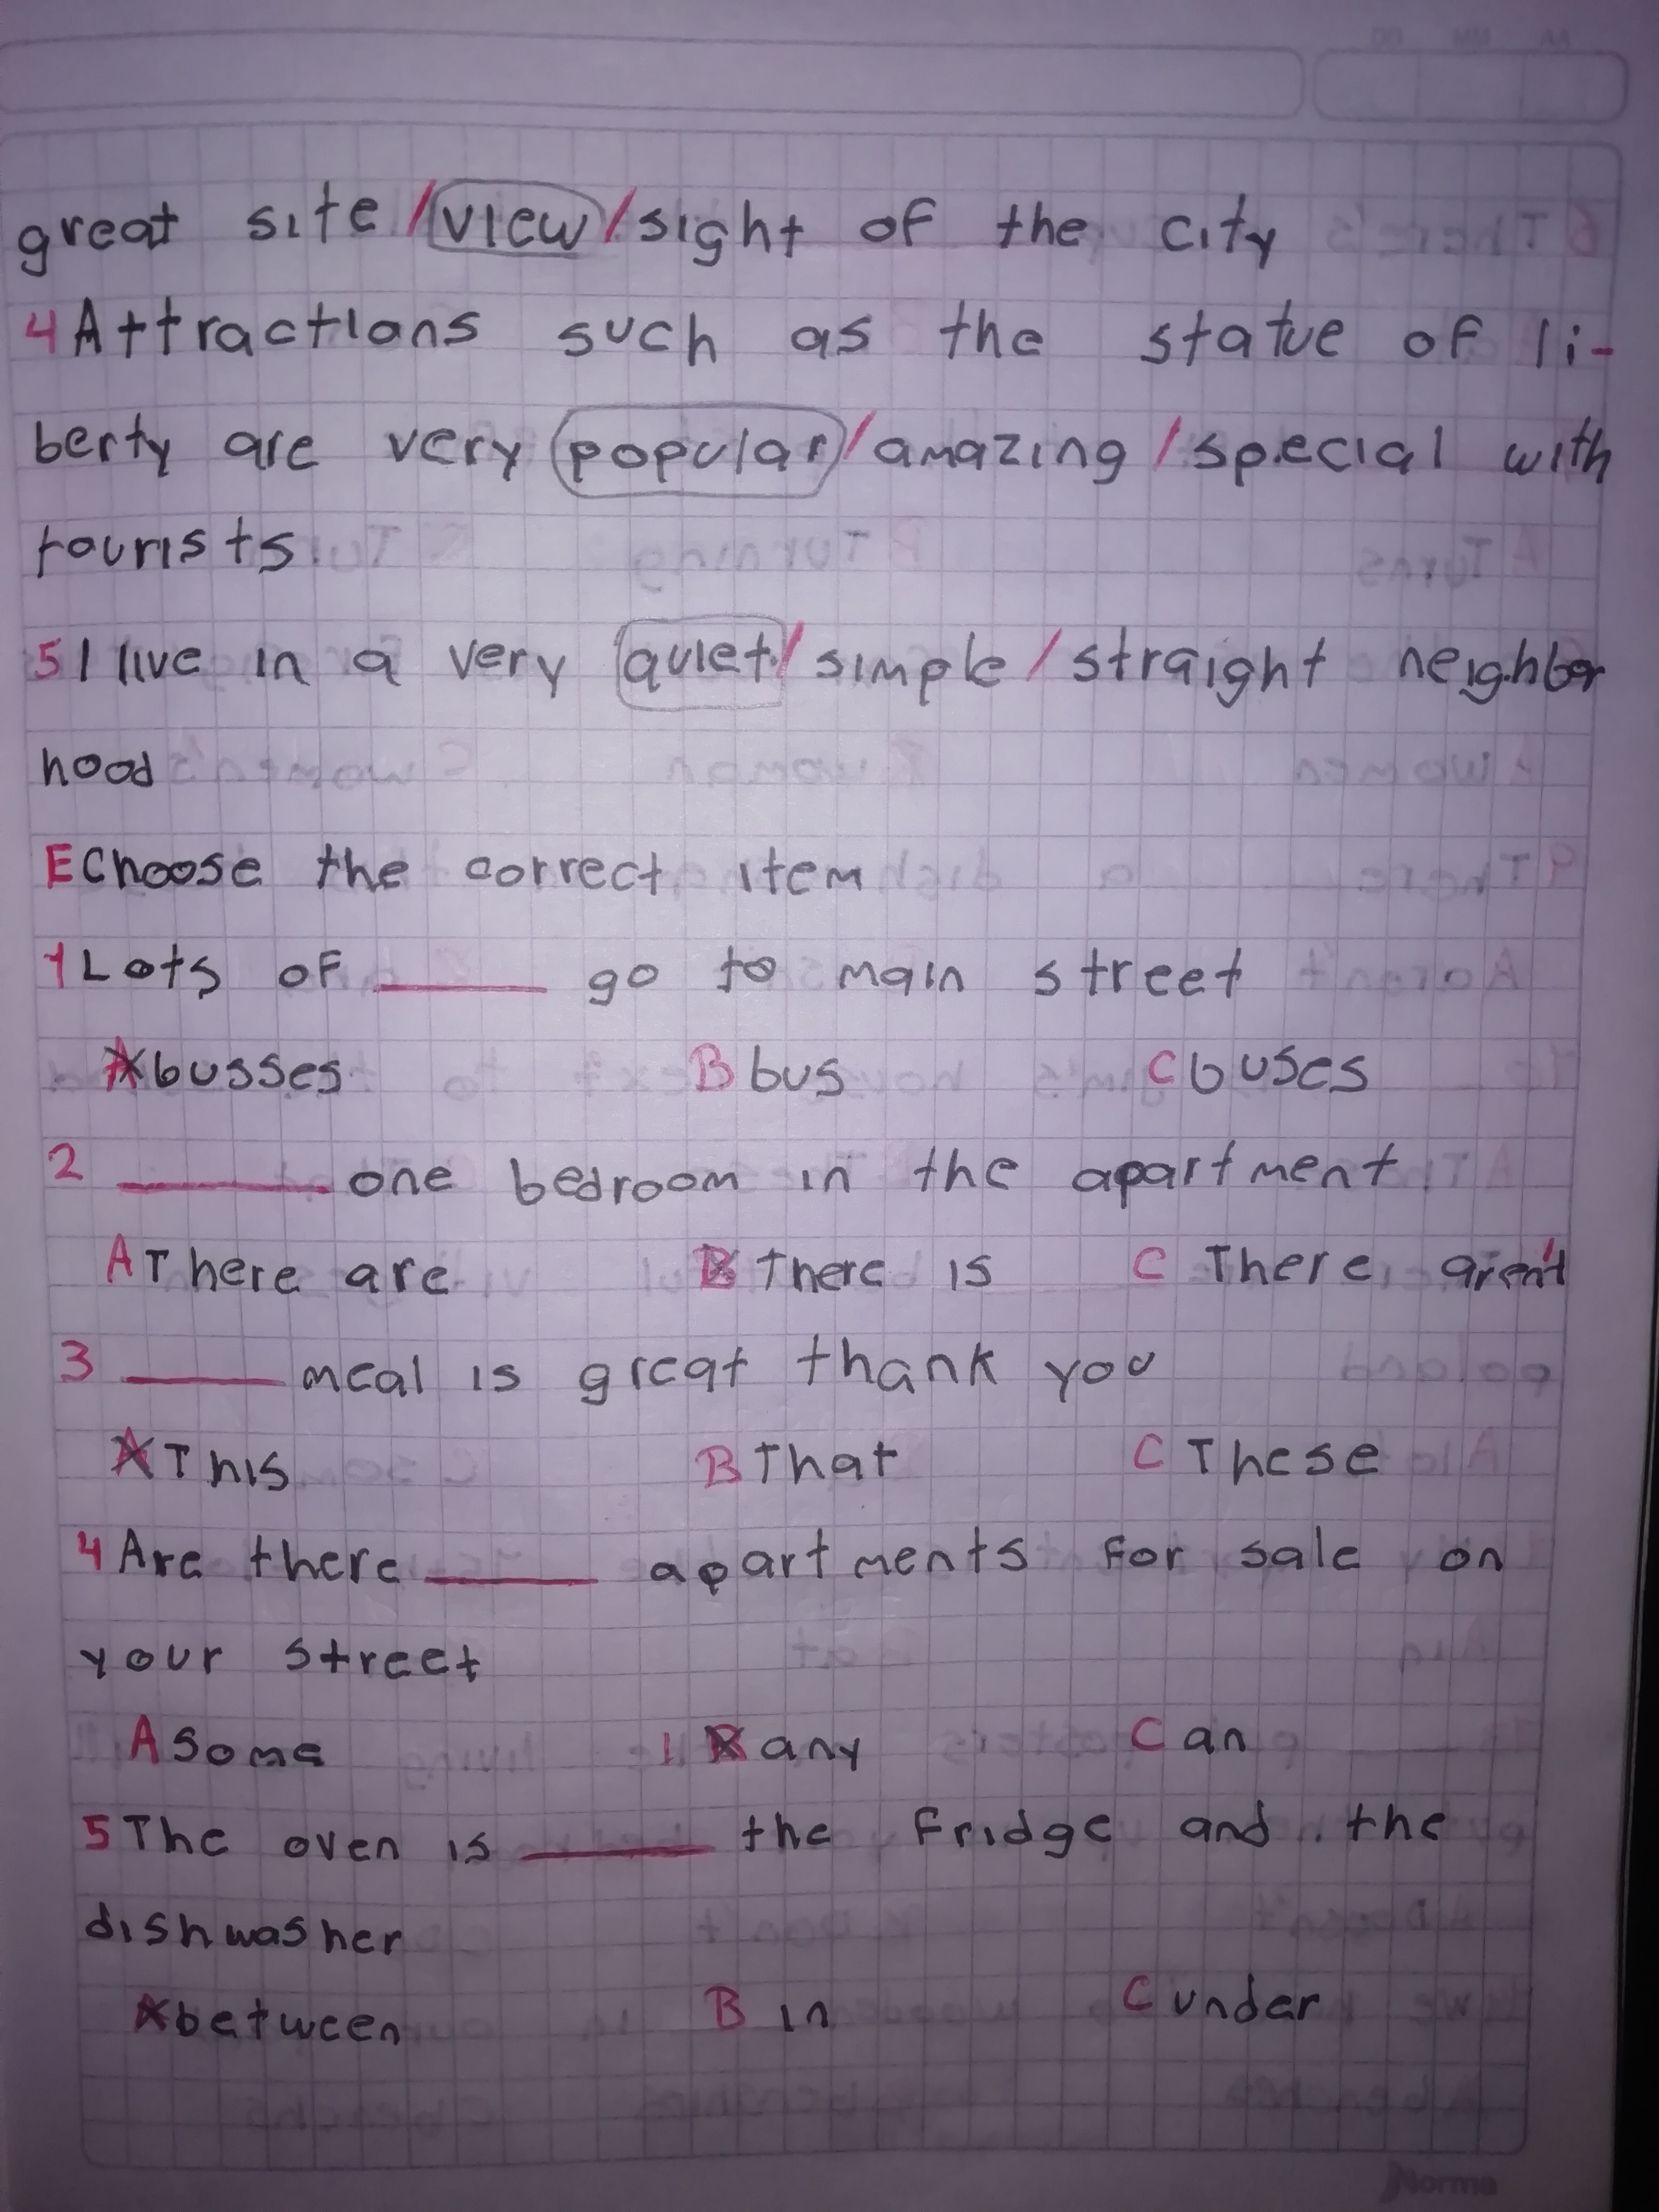 great site / view / sight of the city
4 Attractions such as the statue of li-
berty are very popular / amazing / special with
tourists
5 I live in a very quiet / simple / straight neighbor
hood
E Choose the correct item
1 Lots of ______ go to main street
A busses B bus C buses
2 ______ one bedroom in the apartment
A There are B there is C There aren't
3 ______ meal is great thank you
A This B That C These
4 Are there ______ apartments for sale on
your street
A Some B any C an
5 The oven is ______ the fridge and the
dishwasher
A between B in C under
Norma